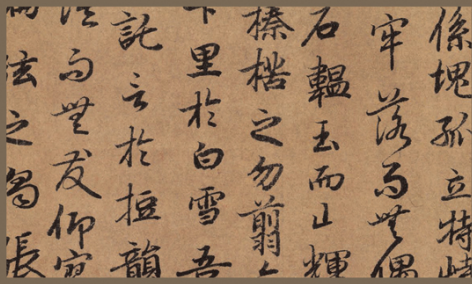 係塊孤立特峙
牢落而無偶
石韞玉而山輝
榛楛之勿翦
下里於白雪吾
託言於短韻
而無友仰寥
偏絃之獨張